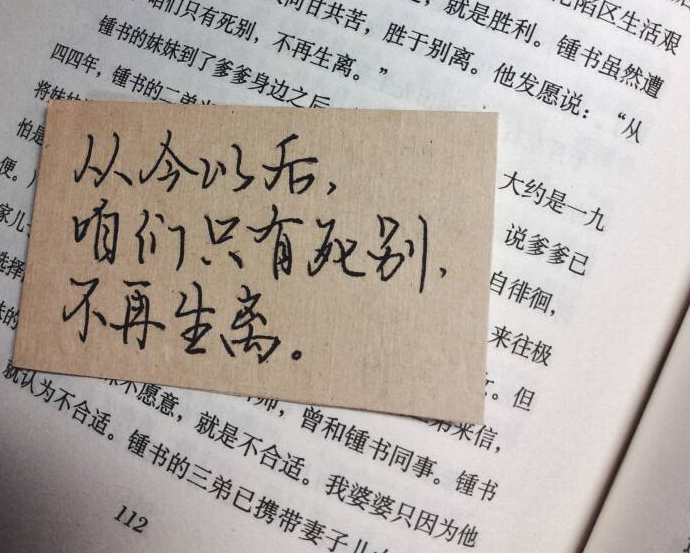 就是胜利。锺书虽然遭
同甘共苦，胜于别离。他发愿说：“从
咱们只有死别，不再生离。”
锺书的妹妹到了爹爹身边之后
四四年，锺书的二弟
大约是一九
将妹妹
说爹爹已
怕是
自徘徊，
便。
来往极
家儿
但
选择
来信，
妹的
不愿意，就是不合适。
曾和锺书同事。锺书
就认为不合适。
我婆婆只因为他
锺书的三弟已携带妻子儿
112
从今以后，
咱们只有死别，
不再生离。